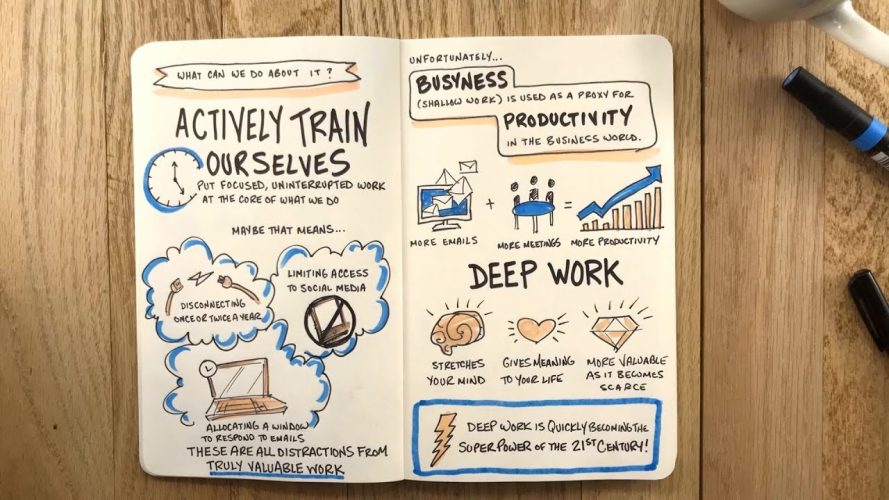 WHAT CAN WE DO ABOUT IT?
ACTIVELY TRAIN
OURSELVES
PUT FOCUSED, UNINTERRUPTED WORK
AT THE CORE OF WHAT WE DO
MAYBE THAT MEANS...
DISCONNECTING
ONCE OR TWICE A YEAR
LIMITING ACCESS
TO SOCIAL MEDIA
ALLOCATING A WINDOW
TO RESPOND TO EMAILS
THESE ARE ALL DISTRACTIONS FROM
TRULY VALUABLE WORK
UNFORTUNATELY...
BUSYNESS
(SHALLOW WORK) IS USED AS A PROXY FOR
PRODUCTIVITY
IN THE BUSINESS WORLD.
+
=
MORE EMAILS
MORE MEETINGS
MORE PRODUCTIVITY
DEEP WORK
STRETCHES
YOUR MIND
GIVES MEANING
TO YOUR LIFE
MORE VALUABLE
AS IT BECOMES
SCARCE
DEEP WORK IS QUICKLY BECOMING THE
SUPERPOWER OF THE 21ST CENTURY!